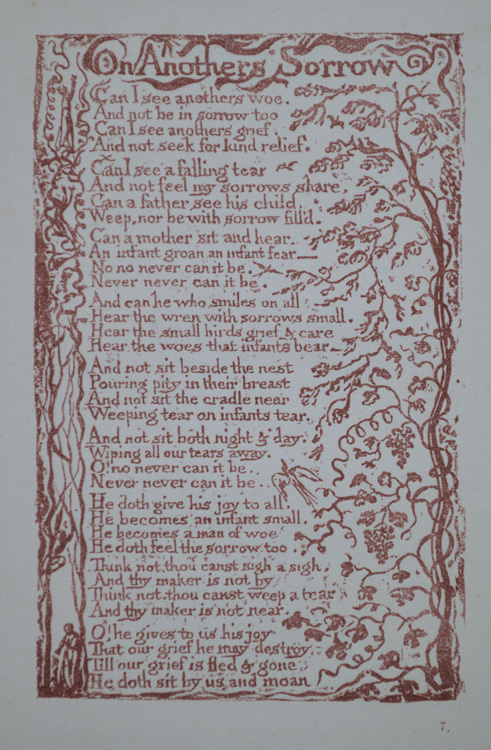 On Anothers Sorrow
Can I see anothers woe.
And not be in sorrow too
Can I see anothers grief.
And not seek for kind relief.
Can I see a falling tear
And not feel my sorrows share,
Can a father see his child,
Weep, nor be with sorrow fill'd.
Can a mother sit and hear.
An infant groan an infant fear—
No no never can it be.
Never never can it be.
And can he who smiles on all
Hear the wren with sorrows small.
Hear the small birds grief & care
Hear the woes that infants bear
And not sit beside the nest
Pouring pity in their breast
And not sit the cradle near
Weeping tear on infants tear.
And not sit both night & day.
Wiping all our tears away.
O! no never can it be.
Never never can it be.
He doth give his joy to all.
He becomes an infant small.
He becomes a man of woe
He doth feel the sorrow too.
Think not, thou canst sigh a sigh,
And thy maker is not by.
Think not, thou canst weep a tear,
And thy maker is not near.
O! he gives to us his joy
That our grief he may destroy
Till our grief is fled & gone
He doth sit by us and moan
7.